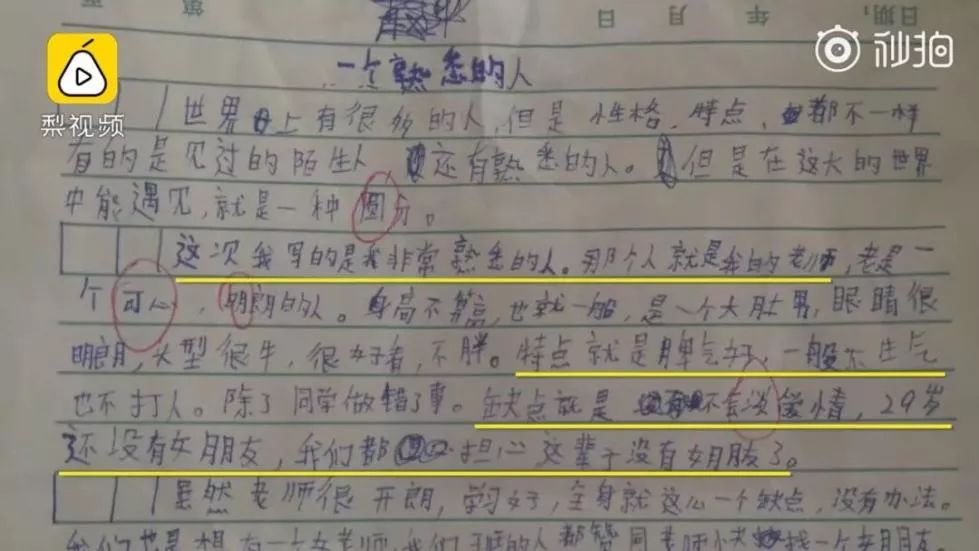 日期: 年 月 日
梨视频
秒拍
一个熟悉的人
世界上有很多的人,但是性格、特点、都不一样
有的是见过的陌生人 还有熟悉的人。但是在这大的世界
中能遇见,就是一种圆分。
这次我写的是我非常熟悉的人。那个人就是我的老师,老是一
个可心,明朗的人。身高不算高,也就一般,是一个大肚男,眼睛很
明朗,大型很牛,很好看,不胖。特点就是脾气好、一般不生气
也不打人。除了同学做错了事。缺点就是不会谈爱情,29岁
还没有女朋友,我们都担心这辈子没有女朋友了。
虽然老师很开朗,学习好,全身就这么一个缺点,没有办法。
我们也是想有一个女老师,我们班的人都替同老师 找一个女朋友。